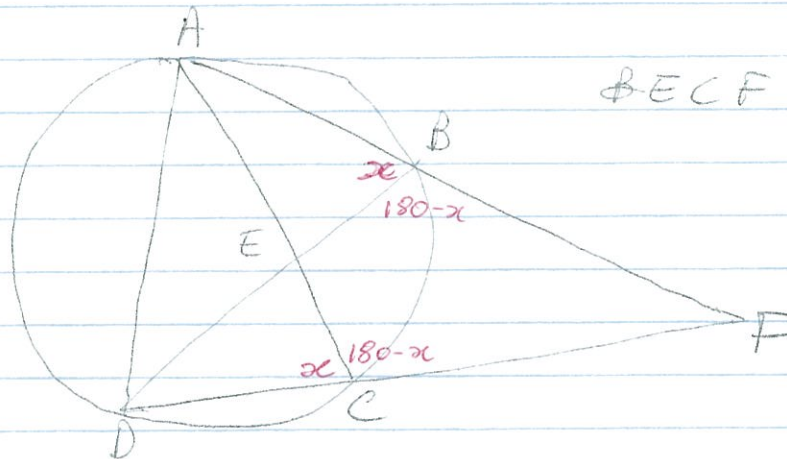 A
BECF
B
x
180-x
E
180-x
x
F
C
D